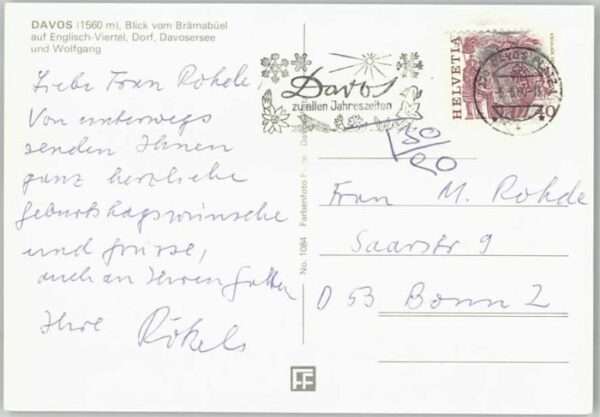 DAVOS (1560 m), Blick vom Brämabüel
auf Englisch-Viertel, Dorf, Davosersee
und Wolfgang
Liebe Frau Rohde,
Von unterwegs
senden Ihnen
ganz herzliche
Geburtstagswünsche
und Grüsse,
auch an Ihren Gatten
Ihre Rökels
Davos
zu allen Jahreszeiten
HELVETIA
40
DAVOS PLATZ
30/90
Frau M. Rohde
Saarstr 9
D 53 Bonn 2
No. 1084 Farbenfoto
FF